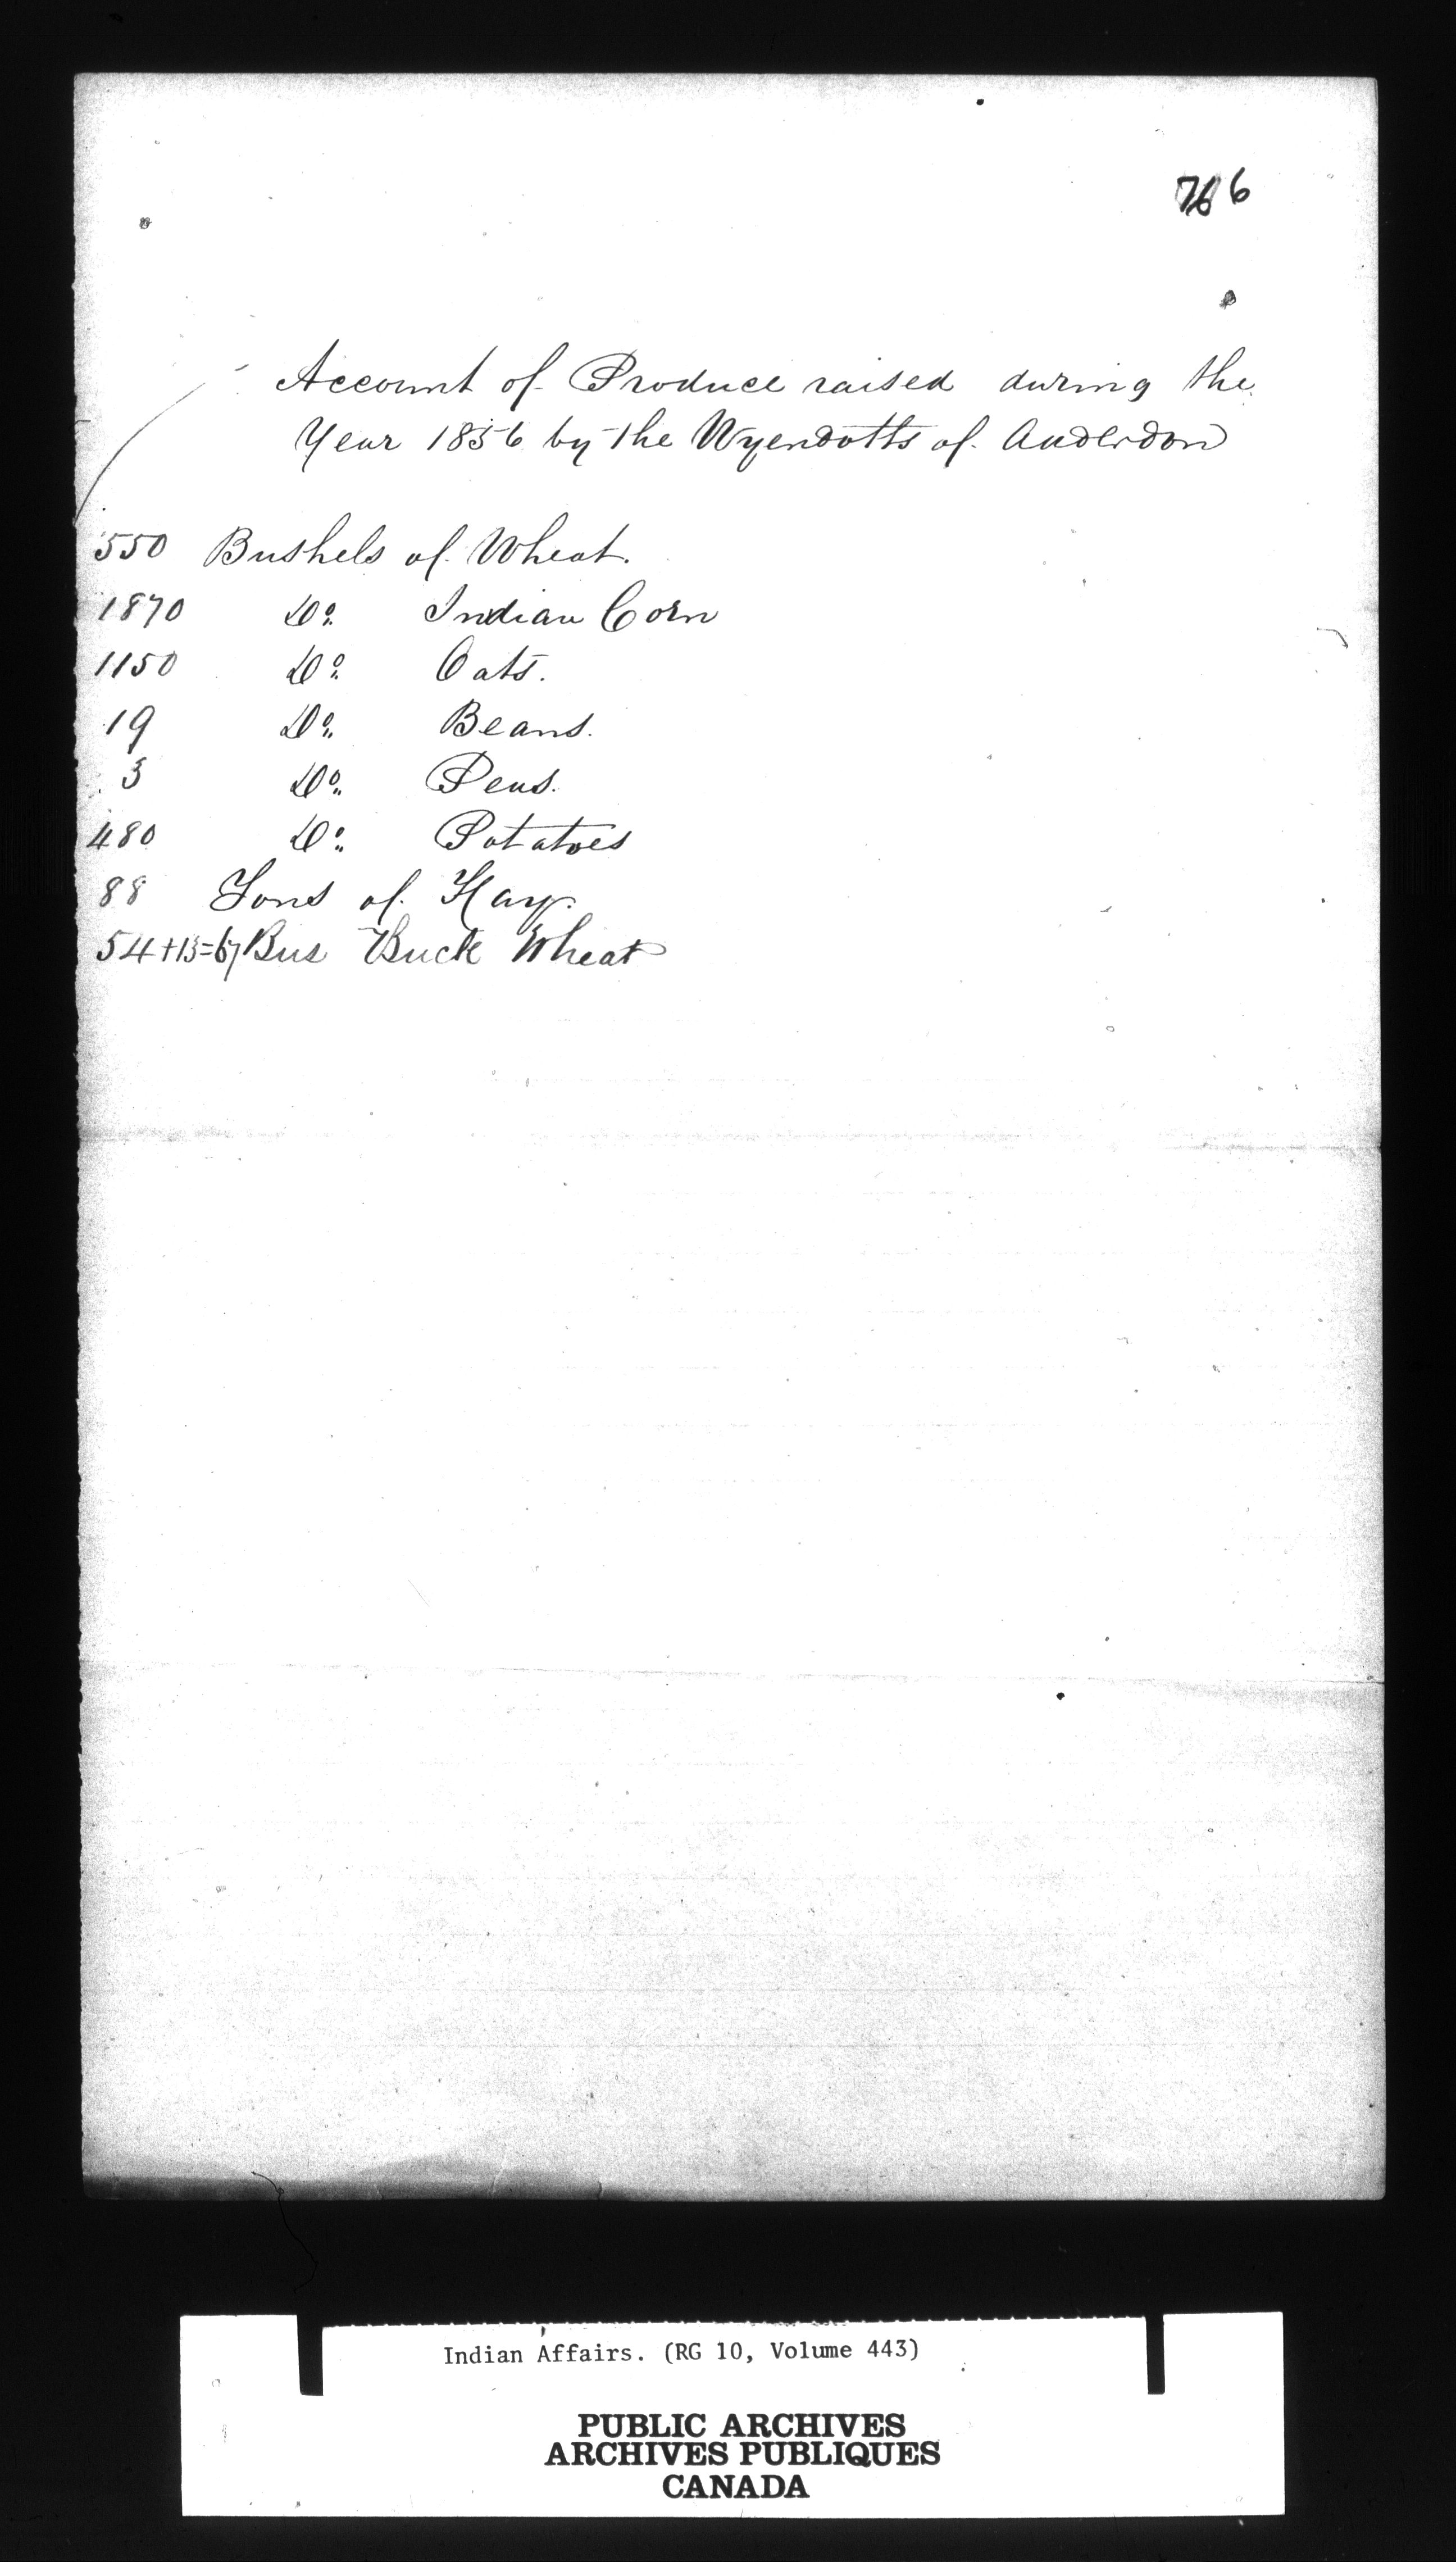 766
Account of Produce raised during the
Year 1856 by the Wyendotts of Anderdon
550 Bushels of Wheat.
1870 Do. Indian Corn
1150 Do. Oats.
19 Do. Beans.
3 Do. Peas.
480 Do. Potatoes
88 Tons of Hay.
54+13=67 Bus Buck Wheat
Indian Affairs. (RG 10, Volume 443)
PUBLIC ARCHIVES
ARCHIVES PUBLIQUES
CANADA